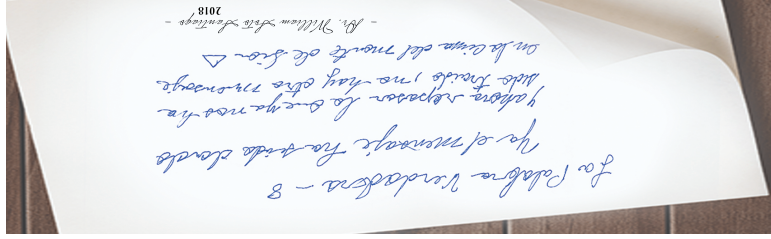 La Palabra Verdadera - 8
Ya el mensaje ha sido dado
y ahora repasar lo que ya nos ha
sido traído, no hay otro mensaje.
en la cima del monte de Sion △
- Dr. William Soto Santiago -
2018